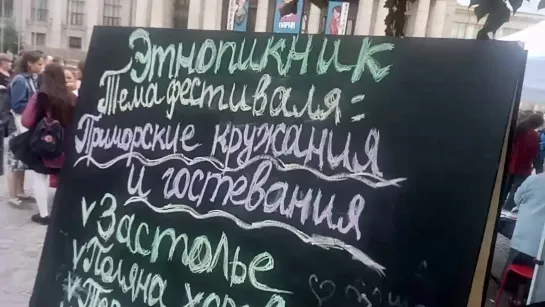 Этнопикник
Тема фестиваля:
Приморские кружания
и гостевания
√ Застолье
√ Поляна